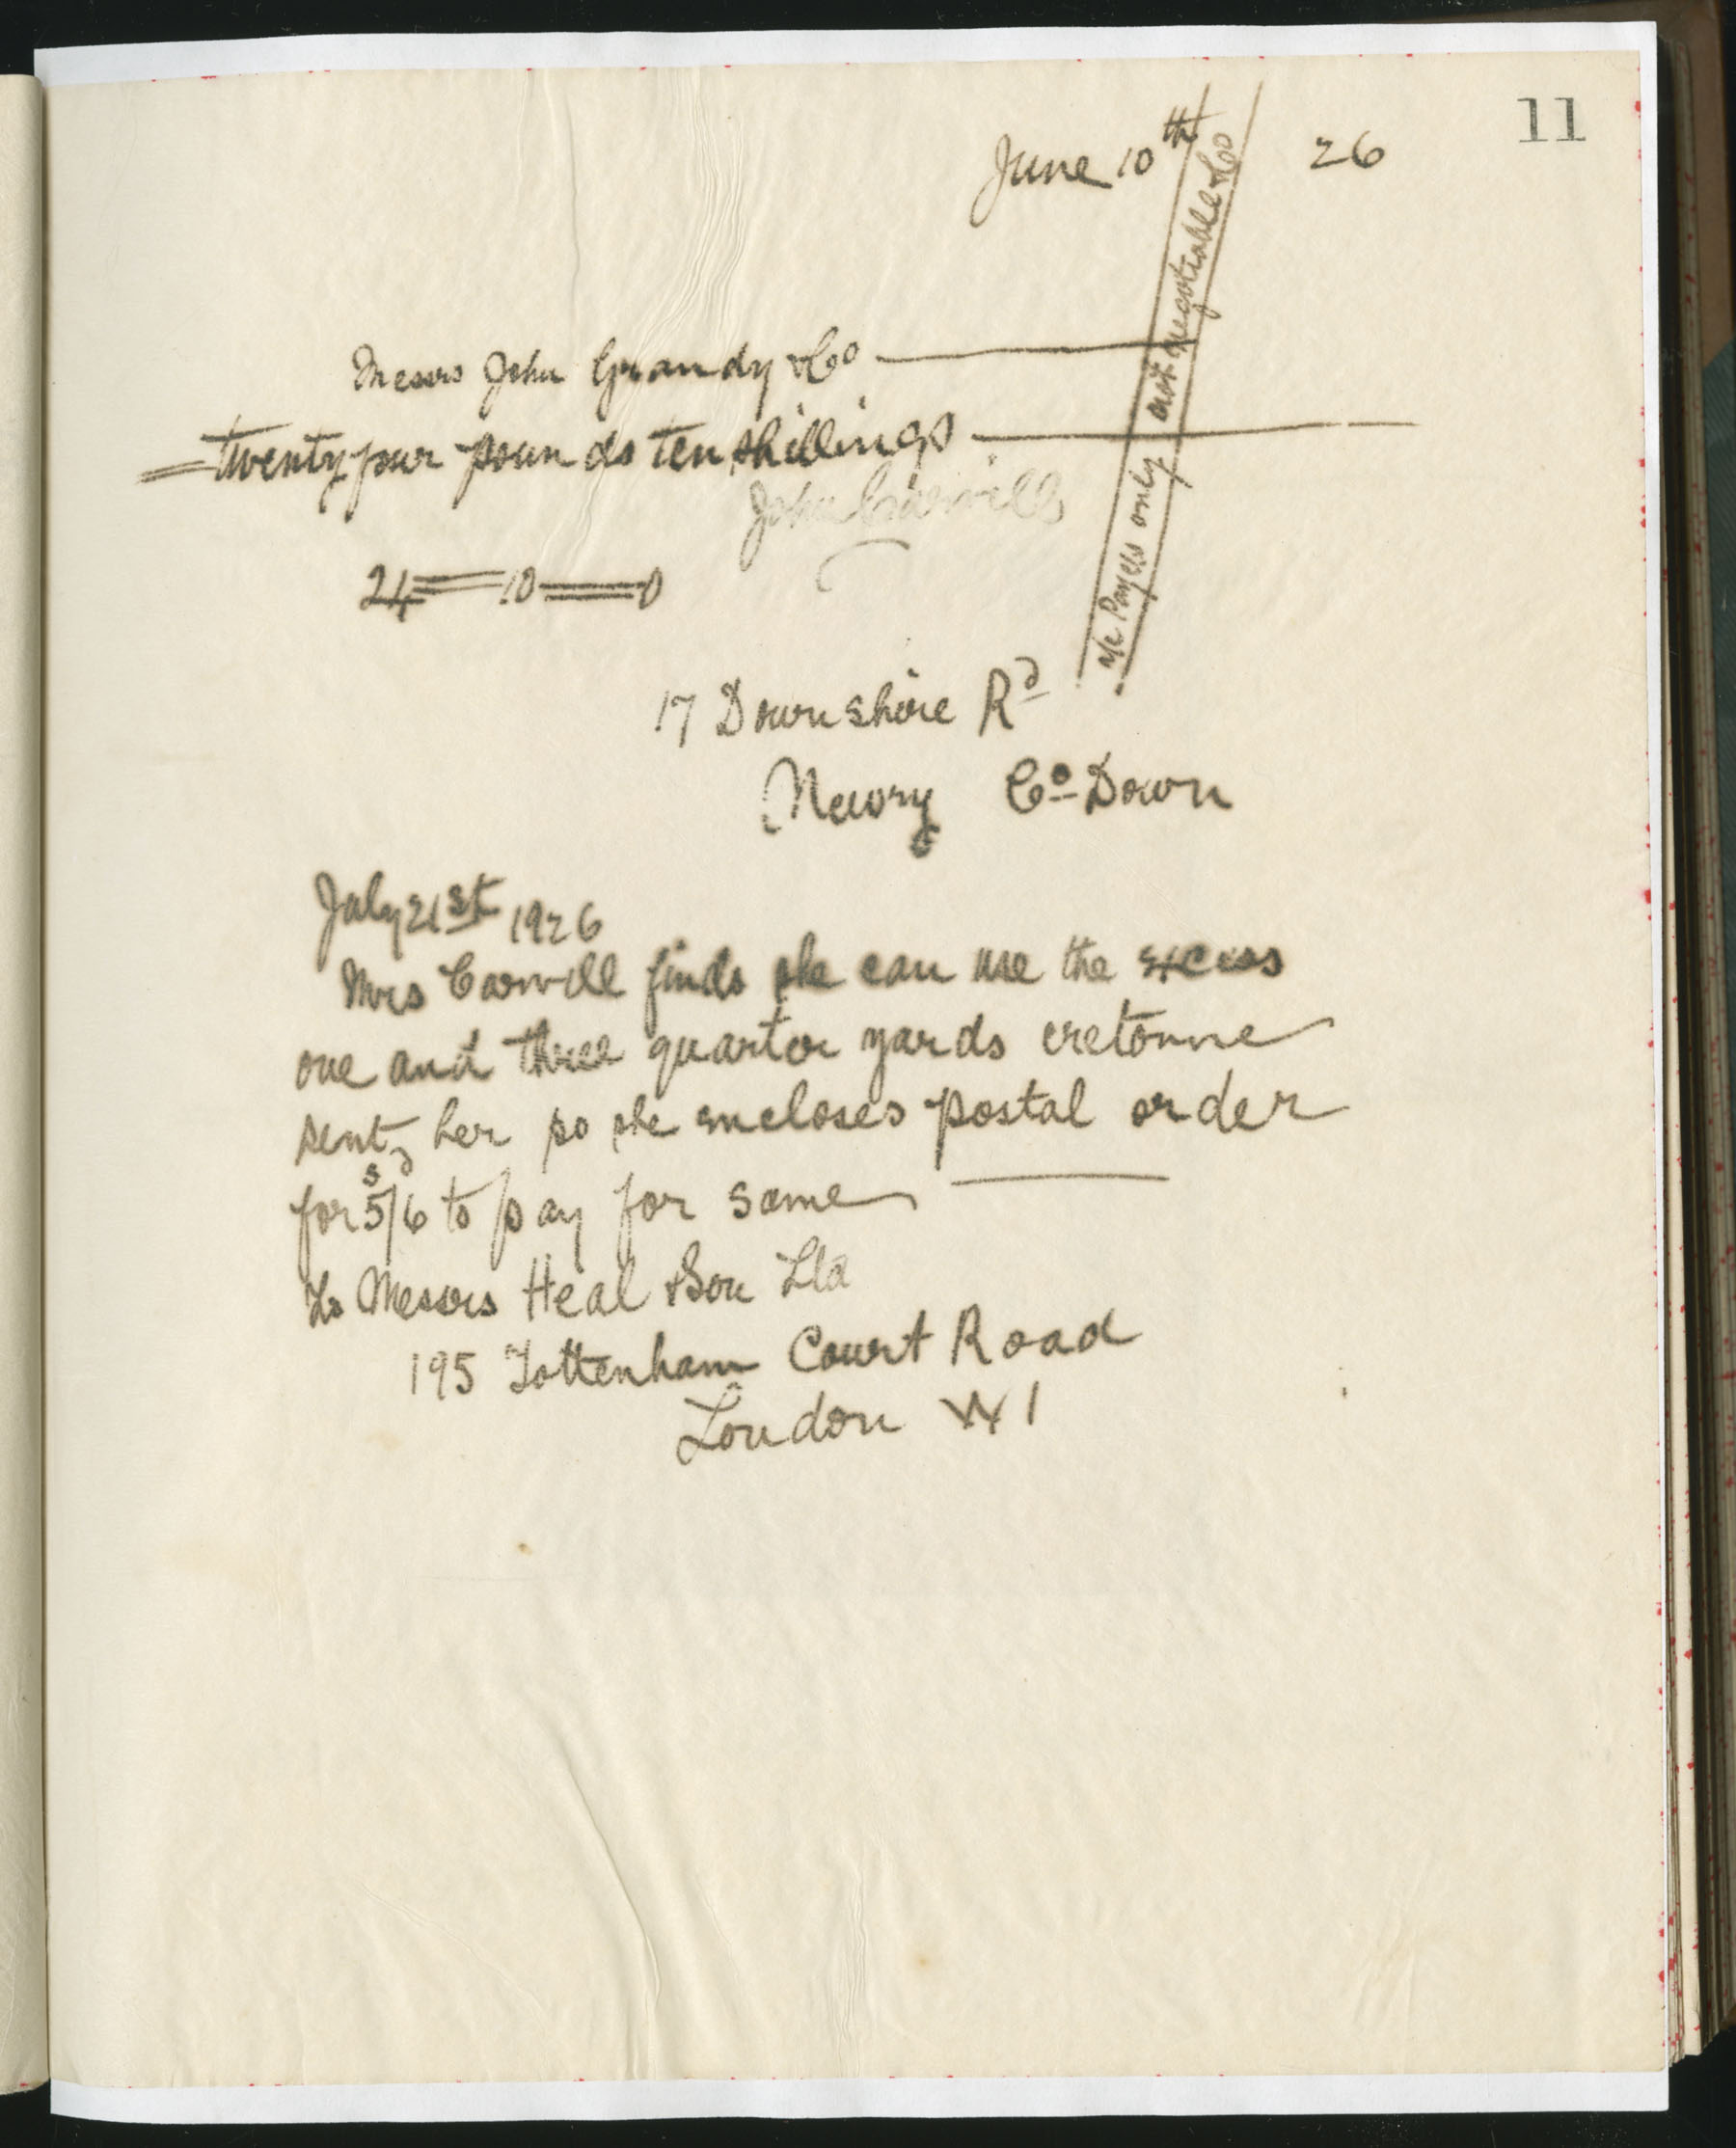 11
June 10th 26
a/c Payees only not negotiable & Co
Messrs John Grandy & Co
twenty four pounds ten shillings
John Carvill
24 = 10 = 0
17 Downshire Rd
Newry Co Down
July 21st 1926
Mrs Carvill finds she can use the excess
one and three quarter yards cretonne
sent her so she encloses postal order
for 5s/6d to pay for same
To Messrs Heal & Son Ltd
195 Tottenham Court Road
London W1